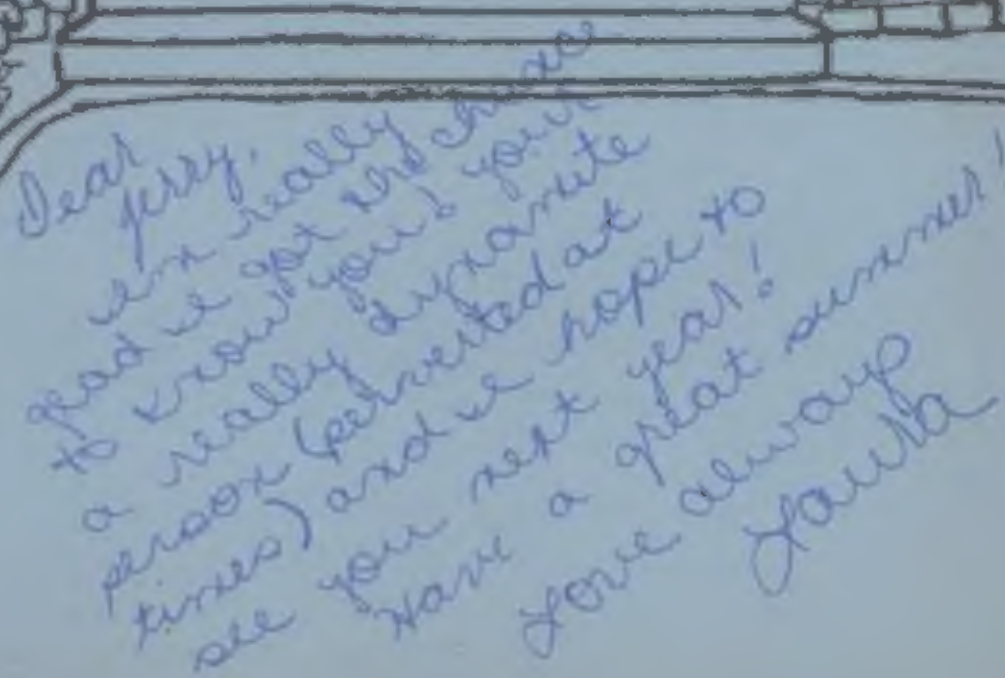 Dear
Jerry,
im really
glad i got the chance
to know you! your
a really dynamite
person (perverted at
times) and i hope to
see you next year!
Have a great summer!
Love always
Laura